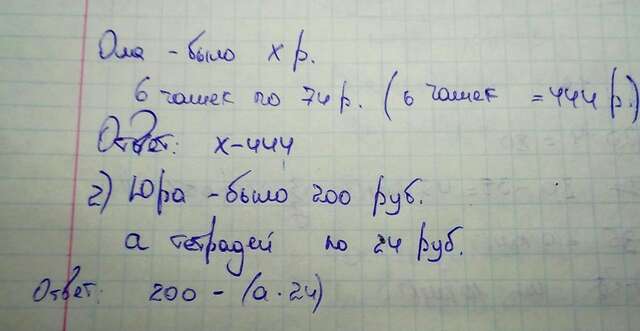 Оля - было х р.
6 чашек по 74 р. (6 чашек = 444 р.)
Ответ: х-444
2) Юра - было 200 руб.
а тетрадей по 24 руб.
Ответ: 200 - (а · 24)